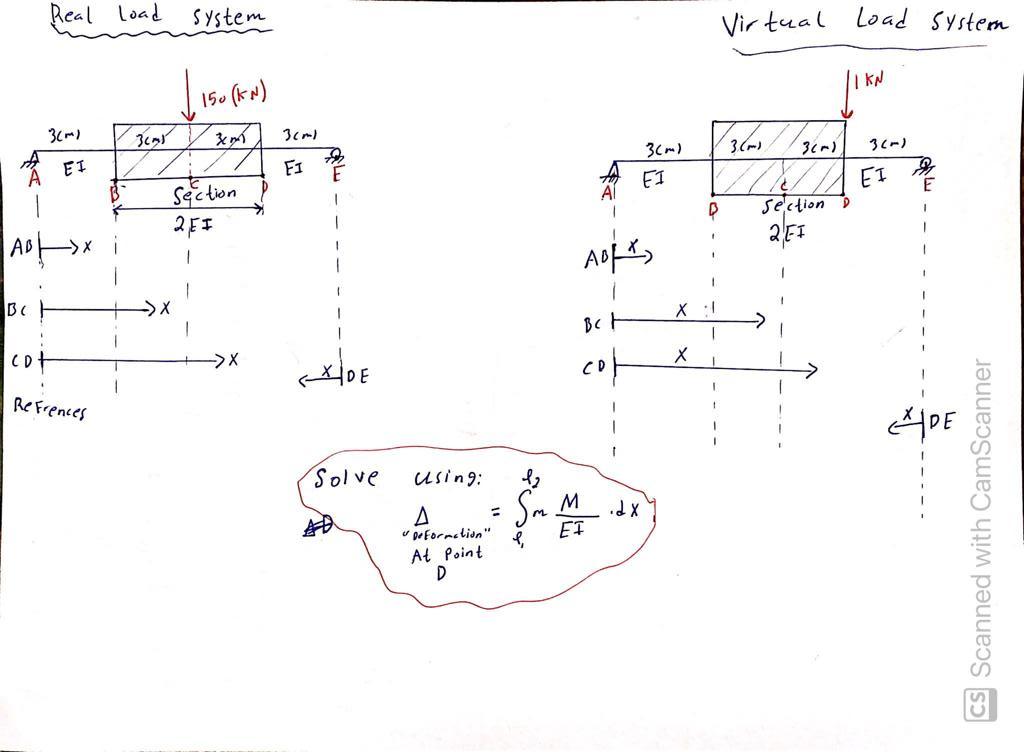 Real Load System
Virtual Load System
150 (KN)
3(m)
3(m)
3(m)
3(m)
EI
EI
A
B
C
D
E
Section
2EI
AB
x
BC
x
CD
x
x
DE
ReFrences
1 KN
3(m)
3(m)
3(m)
3(m)
EI
EI
A
B
C
D
E
Section
2EI
AB
x
BC
x
CD
x
x
DE
Solve using:
Δ = ∫ m M/EI .dx
l2
l1
"DeFormation"
At Point
D
CS Scanned with CamScanner